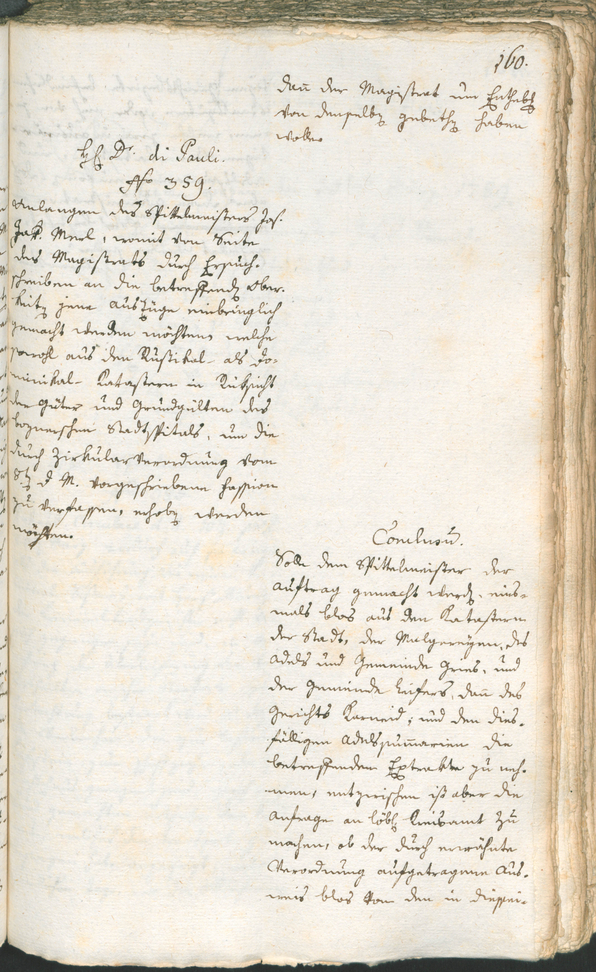 160.
dan̄ der Magistrat um Enthebg
von demselbn gebethn haben
wolle.
H. Dr. di Pauli.
No 359.
Anlangen des Spittelmeisters Jos.
Jak. Merl, womit von Seite
des Magistrats durch Ersuch-
schreiben an die betreffendn Ober-
keitn jene Auszüge einbringlich
gemacht werden möchten, welche
sowohl aus den Rustikal- als Do-
minikal-Katastern in Rücksicht
der Güter und Grundgülten des
boznerischen Stadtspitals, um die
durch Zirkularverordnung vom
d. M. vorgeschriebene Fassion
zu verfassen, erhobn werden
möchten.
Conclusum.
Solle dem Spittelmeister der
Auftrag gemacht werdn, eins-
mals blos aus den Katastern
der Stadt, der Malgereyen, des
Adels und Gemeinde Gries, und
der Gemeinde Leifers, dan̄ des
Gerichts Karneid, und den dies-
fälligen Adelssum̄arien die
betreffenden Extrakte zu neh-
men, entzwischen ist aber die
Anfrage an löbl. Kreisamt zu
machen, ob der durch erwähnte
Verordnung aufgetragene Aus-
weis blos von den in diessei-